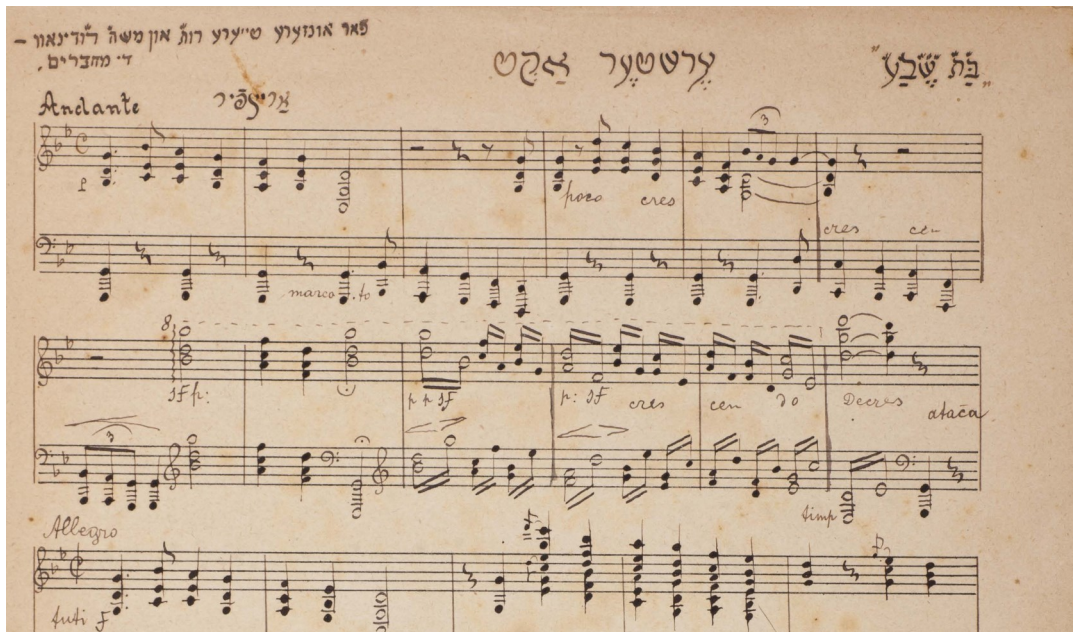 פאר אונזערע טייערע רות און משה רודינאוו –
די מחברים.
„בַּת שֶׁבַע" עֶרשטעֶר אַקט
Andante
p poco cres
cres cen
marca.to
8
sfp: p p sf p: sf cres cen do Decres ataca
3
timp
Allegro
tuti f